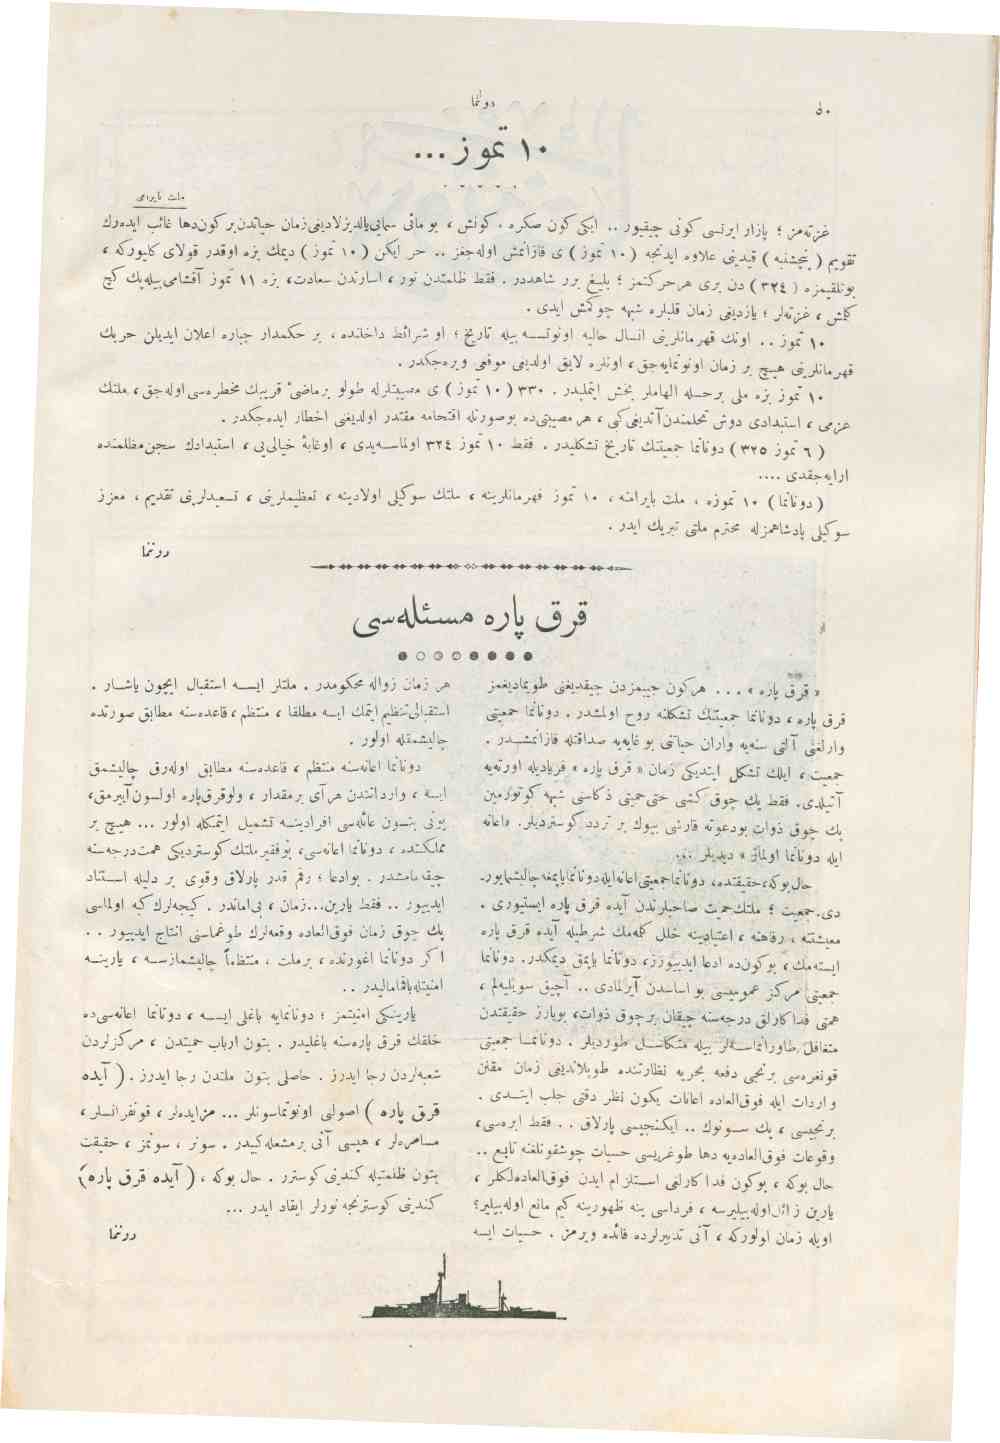 دوننما
١٠ تموز ...
ملت بايرامى
غزته‌مز ؛ پازار ايرتسى كونى چيقيور .. ايكى كون صكره . كونش ، بو مائى سمانى يالديزلاديغى زمان حياتدن بر كون دها غائب ايده‌رك
تقويم ( پنجشنبه ) قيدينى علاوه ايدنجه ( ١٠ تموز ) ى قازانمش اوله‌جغز .. حر ايكن ( ١٠ تموز ) ديمك بزه اوقدر قولاى كليوركه ،
بونلقيمزه ( ٣٢٤ ) دن برى هر حركتمز ؛ بليغ برر شاهددر . فقط ظلمتدن نور ، اسارتدن سعادت ، بزه ١١ تموز آقشامى بيله پك كچ
كلمش ، غزته‌لر ؛ يازديغى زمان قلبلره شبهه چوكمش ايدى .
١٠ تموز .. اونك قهرمانلرينى انسال حاليه اونوتسه بيله تاريخ ؛ او شرائط داخلنده ، بر حكمدار جباره اعلان ايديلن حربك
قهرمانلرينى هيچ بر زمان اونوتمايه‌جق ، اونلره لايق اولديغى موقعى ويره‌جكدر .
١٠ تموز بزه ملى بر حسله الهاملر بخش ايتمليدر . ٣٣٠ ( ١٠ تموز ) ى مصيبتلرله طولو بر ماضىء قريبك مخطره‌سى اوله‌جق ، ملتك
عزمى ، استبدادى دوش تحملندن آتديغى كبى ، هر مصيبتى ده بو صورتله اقتحامه مقتدر اولديغنى اخطار ايده‌جكدر .
( ٦ تموز ٣٢٥ ) دونانما جمعيتنك تاريخ تشكليدر . فقط ١٠ تموز ٣٢٤ اولماسه‌يدى ، اوغايهٔ خياليى ، استبدادك سجن مظلمنده
ارايه‌جقدى ....
( دونانما ) ١٠ تموزه ، ملت بايرامنه ، ١٠ تموز قهرمانلرينه ، ملتك سوكيلى اولادينه ، تعظيملرينى ، تسعيدلرينى تقديم ، معزز
سوكيلى پادشاهمزله محترم ملتى تبريك ايدر .
دوننما
قرق پاره مسئله‌سى
« قرق پاره » ... هركون جيبمزدن چيقديغنى طويماديغمز
قرق پاره ، دونانما جمعيتنك تشكلنه روح اولمشدر . دونانما جمعيتى
وارلغنى آلتى سنه‌يه واران حياتنى بو غايه‌يه صداقتله قازانمشدر .
جمعيت ، ايلك تشكل ايتديكى زمان « قرق پاره » فرياديله اورته‌يه
آتيلدى . فقط پك چوق كشى حتى حميتى ذكاسنى شبهه كوتورمين
پك چوق ذوات بو دعوته قارشى بيوك بر تردد كوسترديلر . «اعانه
ايله دونانما اولماز » ديديلر ...
حال بوكه ، حقيقتده ، دونانما جمعيتى اعانه ايله دونانما ياپمغه چاليشمايور-
دى . جمعيت ؛ ملتك حميت صاحبلرندن آيده قرق پاره ايستيورى .
معيشتنه ، رفاهنه ، اعتيادينه خلل كلمه‌مك شرطيله آيده قرق پاره
ايسته‌مك ، بوكون ده ادعا ايدييورز ، دونانما ياپمق ديمكدر . دونانما
جمعيتى مركز عموميسى بو اساسدن آيرلمادى .. آچيق سويليه‌لم ،
همتى فداكارلق درجه‌سنه چيقان بر چوق ذوات ، بو بارز حقيقتدن
متغافل طاورانماسه‌لر بيله متكاسل طورديلر . دونانما جمعيتى
قونغره‌سى برنجى دفعه بحريه نظارتنده طوپلانديغى زمان مقنن
واردات ايله فوق العاده اعانات يكون نظر دقتى جلب ايتدى .
برنجيسى ، پك سونوك .. ايكنجيسى پارلاق .. فقط ابره‌سى ،
وقوعات فوق العاده‌يه دها طوغريسى حسيات جوشقونلغنه تابع ..
حال بوكه ، بوكون فداكارلغى استلزام ايدن فوق العاده‌لكلر ،
يارين زائل اوله‌بيليرسه ، فرداسى ينه ظهورينه كيم مانع اوله‌بيلير؟
اويله زمان اولوركه ، آنى تدبيرلرده فائده ويرمز . حسيات ايسه
هر زمان زواله محكومدر . ملتلر ايسه استقبال ايچون ياشار .
استقبالى تنظيم ايتمك ايسه مطلقا ، منتظم ، قاعده‌سنه مطابق صورتده
چاليشمقله اولور .
دونانما اعانه‌سنه منتظم ، قاعده‌سنه مطابق اوله‌رق چاليشمق
ايسه ، وارداتندن هر آى بر مقدار ، ولو قرق پاره اولسون آييرمق ،
بونى بتون عائله‌سى افرادينه تشميل ايتمكله اولور ... هيچ بر
مملكتده ، دونانما اعانه‌سى ، بو فقير ملتك كوسترديكى همت درجه‌سنه
چيقمامشدر . بو ادعا ؛ رقم قدر پارلاق وقوى بر دليله استناد
ايدييور .. فقط يارين... زمان ، بى اماندر . كيجه‌لرك كبه اولماسى
پك چوق زمان فوق العاده وقعه‌لرك طوغماسنى انتاج ايدييور ..
اكر دونانما اغورنده ، بر ملت ، منتظماً چاليشمازسه ، يارينه
امنيتله باقاماليدر ..
يارينكى امنيتمز ؛ دونانمايه باغلى ايسه ، دونانما اعانه‌سى ده
خلقك قرق پاره‌سنه باغليدر . بتون ارباب حميتدن ، مركزلردن
شعبه‌لردن رجا ايدرز . حاصلى بتون ملتدن رجا ايدرز . ( آيده
قرق پاره ) اصولنى اونوتماسونلر ... مزايده‌لر ، قونفرانسلر ،
مسامره‌لر ، هپسى آنى بر مشعله كبيدر . سونر ، سونمز ، حقيقت
بتون ظلمتيله كندينى كوسترر . حال بوكه ، ( آيده قرق پاره )
كندينى كوسترنجه نورلر ايقاد ايدر ...
دوننما